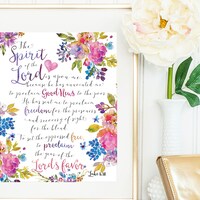 The
Spirit
of the
Lord is upon me,
because he has anointed me
to proclaim Good News to the poor
He has sent me to proclaim
freedom for the prisoners
and recovery of sight
for the blind
To set the oppressed free,
to proclaim
the year of the
Lord's favor
Luke 4:18